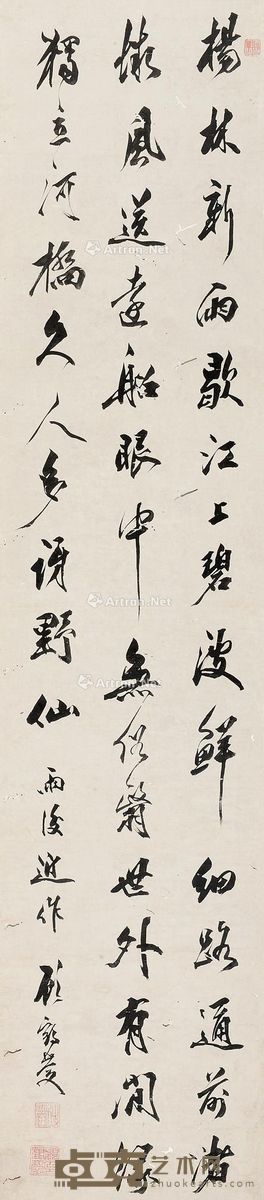 楊林新雨歇江上碧波鮮細路通前渚
微風送遠船眼中無俗翳世外有閒緣
獨立河橋久人多訝野仙
雨後近作 顧
Artron.Net
Artron.Net
Artron.Net
卓克艺术网